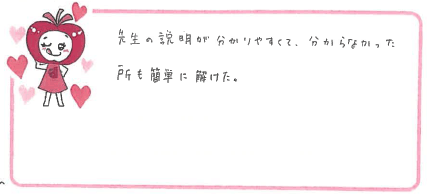 先生の説明が分かりやすくて、分からなかった
所も簡単に解けた。